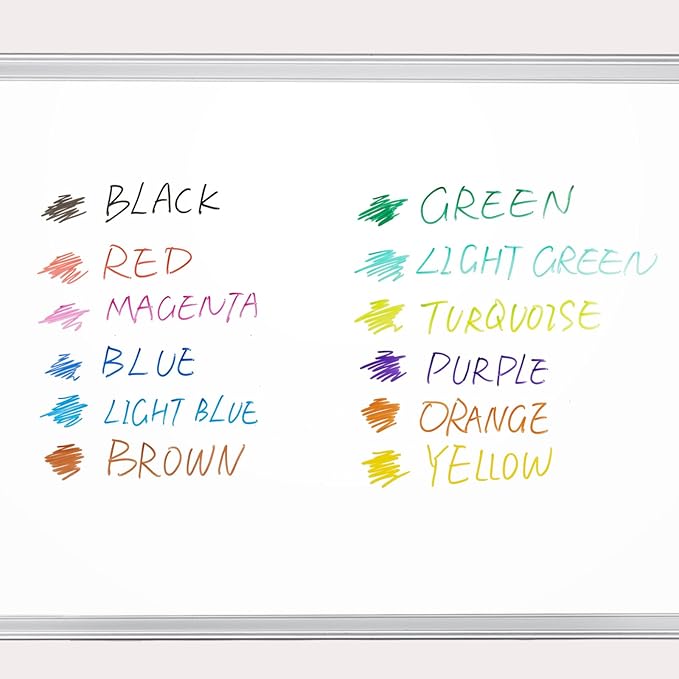 BLACK
RED
MAGENTA
BLUE
LIGHT BLUE
BROWN
GREEN
LIGHT GREEN
TURQUOISE
PURPLE
ORANGE
YELLOW